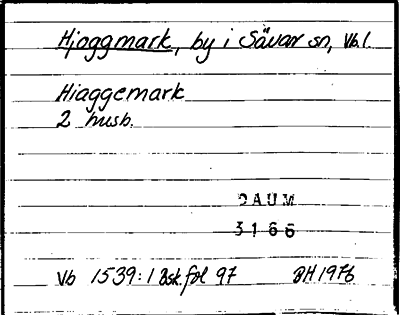 Hjoggmark, by i Sävar sn, Vb.l.
Hiaggemark
2 husb.
DAUM
3166
Vb 1539:1 Bsk. fol 97 BH 1976